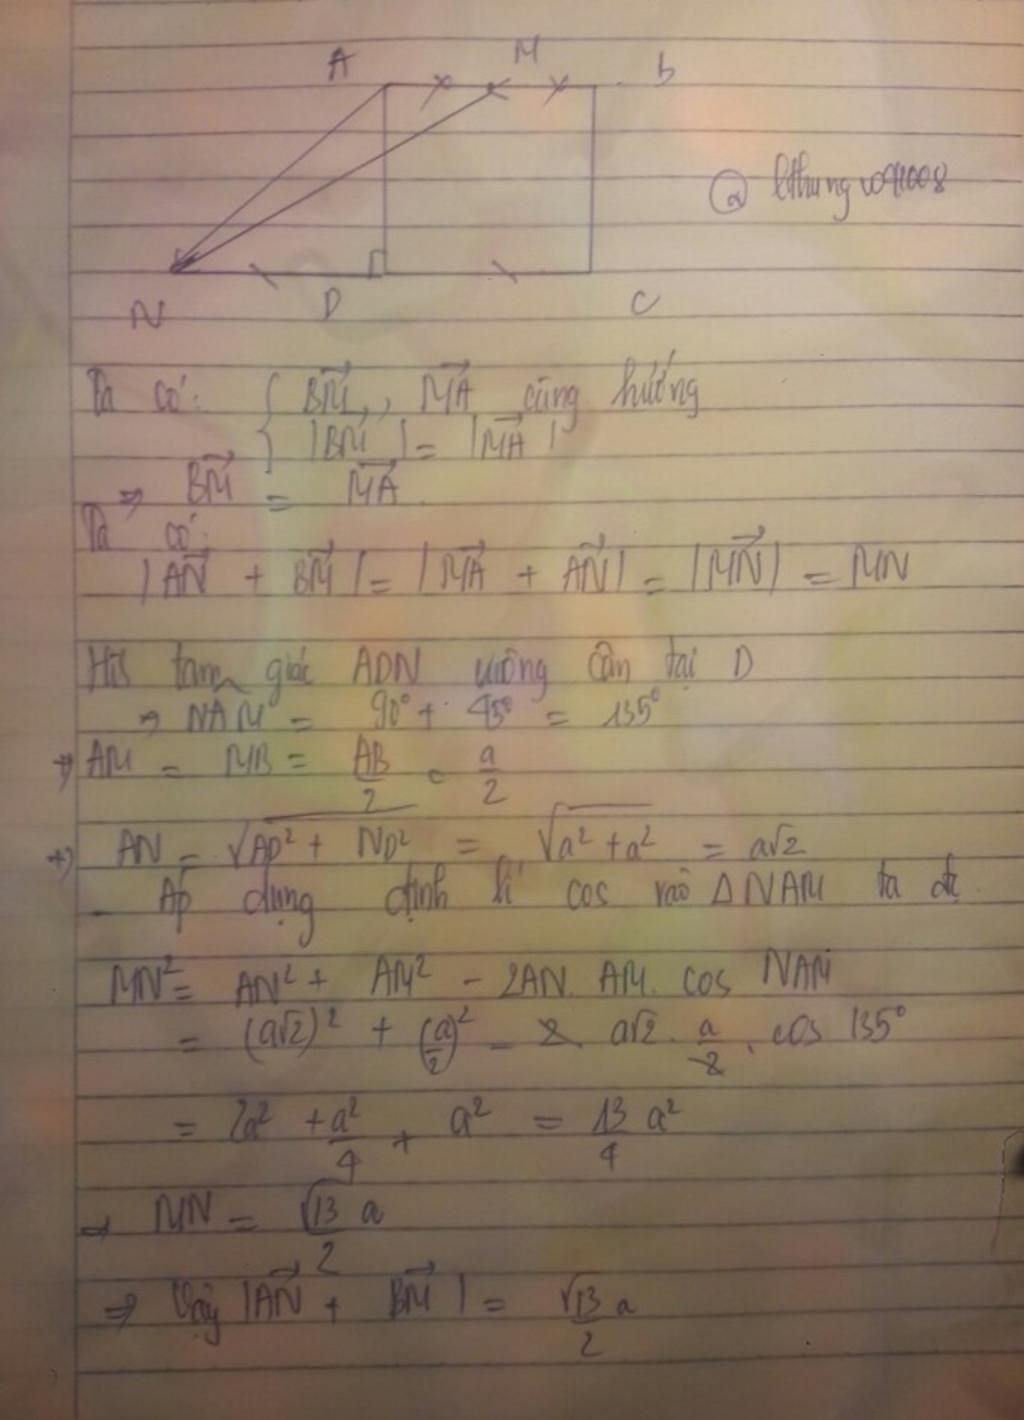 A M B
N D C
Ta có: { BM→, MA→ cùng hướng
|BM→| = |MA→|
⇒ BM→ = MA→
Ta có:
|AN→ + BM→| = |MA→ + AN→| = |MN→| = MN
tam giác ADN vuông cân tại D
⇒ NAM = 90° + 45° = 135°
+) AM = MB = AB/2 = a/2
+) AN = √(AD² + ND²) = √(a² + a²) = a√2
- Áp dụng định lí cos vào ΔNAM ta đc
MN² = AN² + AM² - 2AN. AM. cos NAM
= (a√2)² + (a/2)² - 2. a√2. a/2. cos 135°
= 2a² + a²/4 + a² = 13/4 a²
→ MN = √13/2 a
⇒ Vậy |AN→ + BM→| = √13/2 a